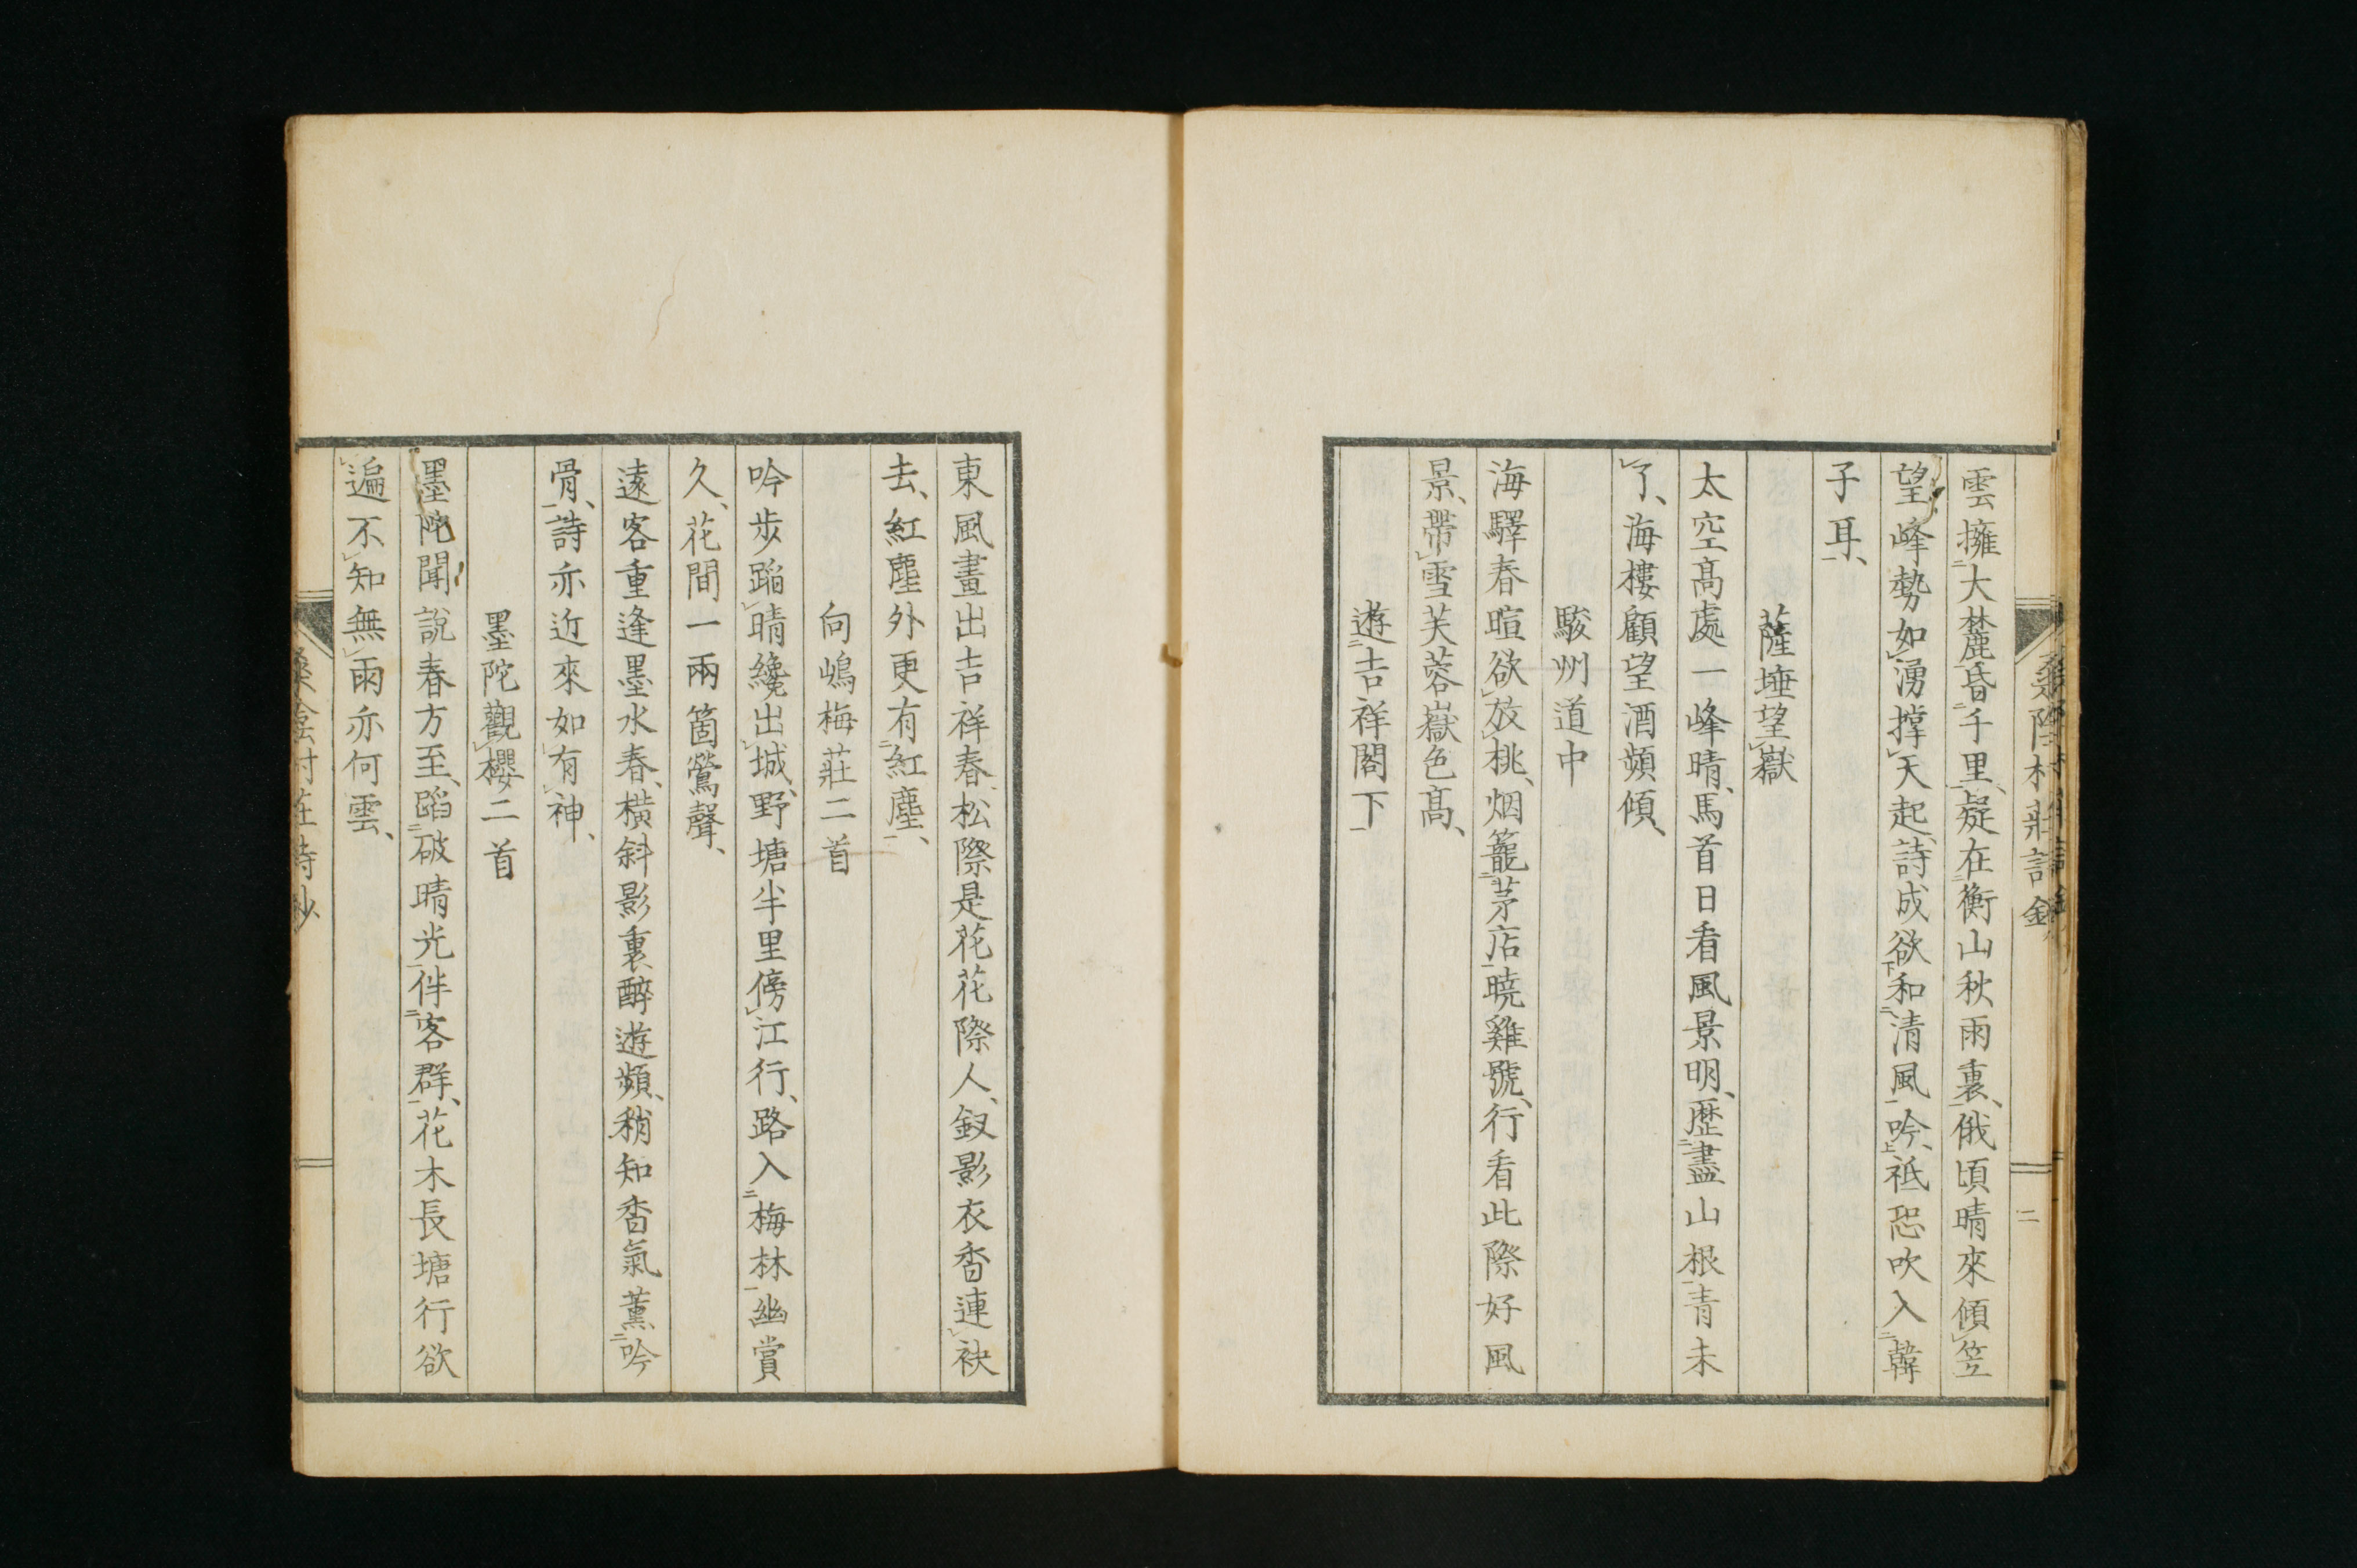 桑陰村莊詩鈔
二
雲擁二大麓一昏二千里一、疑在二衡山秋雨裏一、俄頃晴來傾レ笠
望、峰勢如レ湧撑レ天起、詩成欲下和二清風一吟上、祗恐吹入二韓
子耳一、
薩埵望レ嶽
太空高處一峰晴、馬首日看風景明、歷二盡山根一青未
レ了、海樓顧望酒頻傾、
駿州道中
海驛春暄欲レ放レ桃、烟籠二茅店一曉雞號、行看此際好風
景、帶レ雪芙蓉嶽色高、
遊二吉祥閣下一
東風畫出吉祥春、松際是花花際人、釵影衣香連レ袂
去、紅塵外更有二紅塵一、
向嶋梅莊二首
吟步蹈レ晴纔出レ城、野塘半里傍レ江行、路入二梅林一幽賞
久、花間一兩箇鶯聲、
遠客重逢墨水春、橫斜影裏醉遊頻、稍知香氣薰二吟
骨一、詩亦近來如レ有レ神、
墨陀觀レ櫻二首
墨陀聞說春方至、蹈二破晴光一伴二客群一、花木長塘行欲
レ遍、不レ知無レ雨亦何雲、
桑陰村莊詩鈔